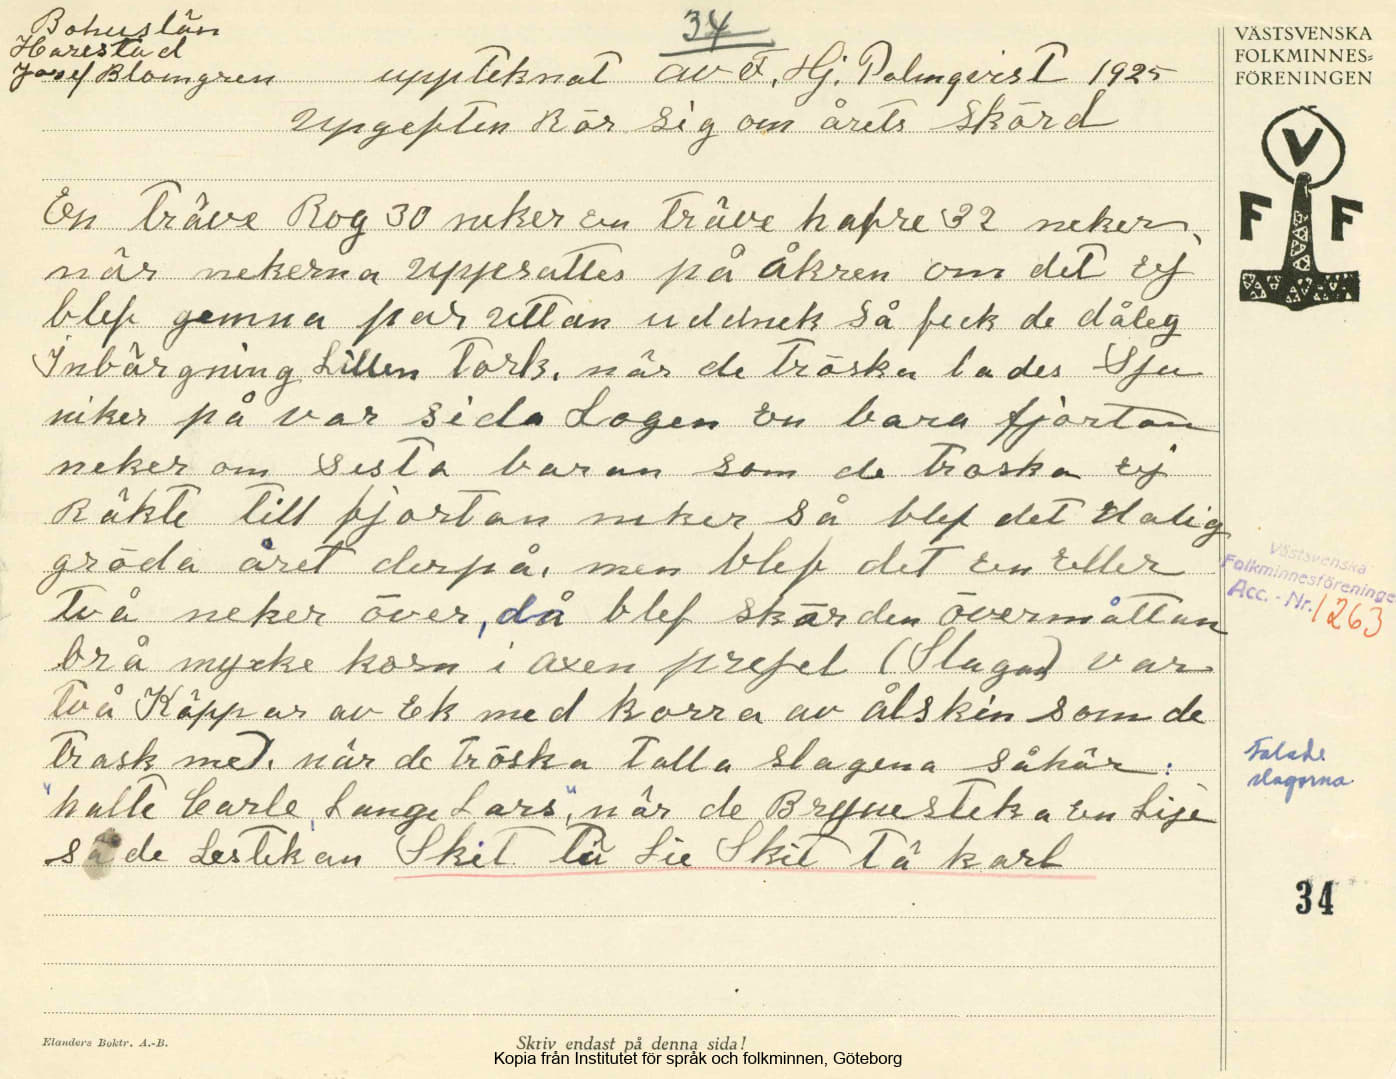 34
Bohuslän
Harestad
Josef Blomgren
uppteknat av F. Hj. Palmqvist 1925
Upgeften Rör sig om årets Skörd
En träve Rog 30 neker en träve hafre 32 neker,
när nekerna uppsattes på åkren om det ej
blef gemna par uttan uddnek så feck de dåleg
Inbärgning Lillen Tork. när de tröska lades Sju
niker på var sida Logen en bara fjortan
neker om Sista baran som de troska ej
Räkte till fjortan neker så blef det dalig
gröda året derpå. men blef det en eller
två neker över, då blef skärden övermåttan
brå mycke korn i axen prejel (Slagan) var
två Käppar av Ek med korra av ålskin som de
trask med. när de tröska talla slagena såhär:
"halte Carle, Lange Lars", när de Brynesteka en Lije
så de Lestekan Skit tu Lie Skit tå karl
VÄSTSVENSKA
FOLKMINNES-
FÖRENINGEN
V
F F
Västsvenska
Folkminnesföreningen
Acc.-Nr. 1263
Talade
slagorna
34
Elanders Boktr. A.-B.
Skriv endast på denna sida!
Kopia från Institutet för språk och folkminnen, Göteborg